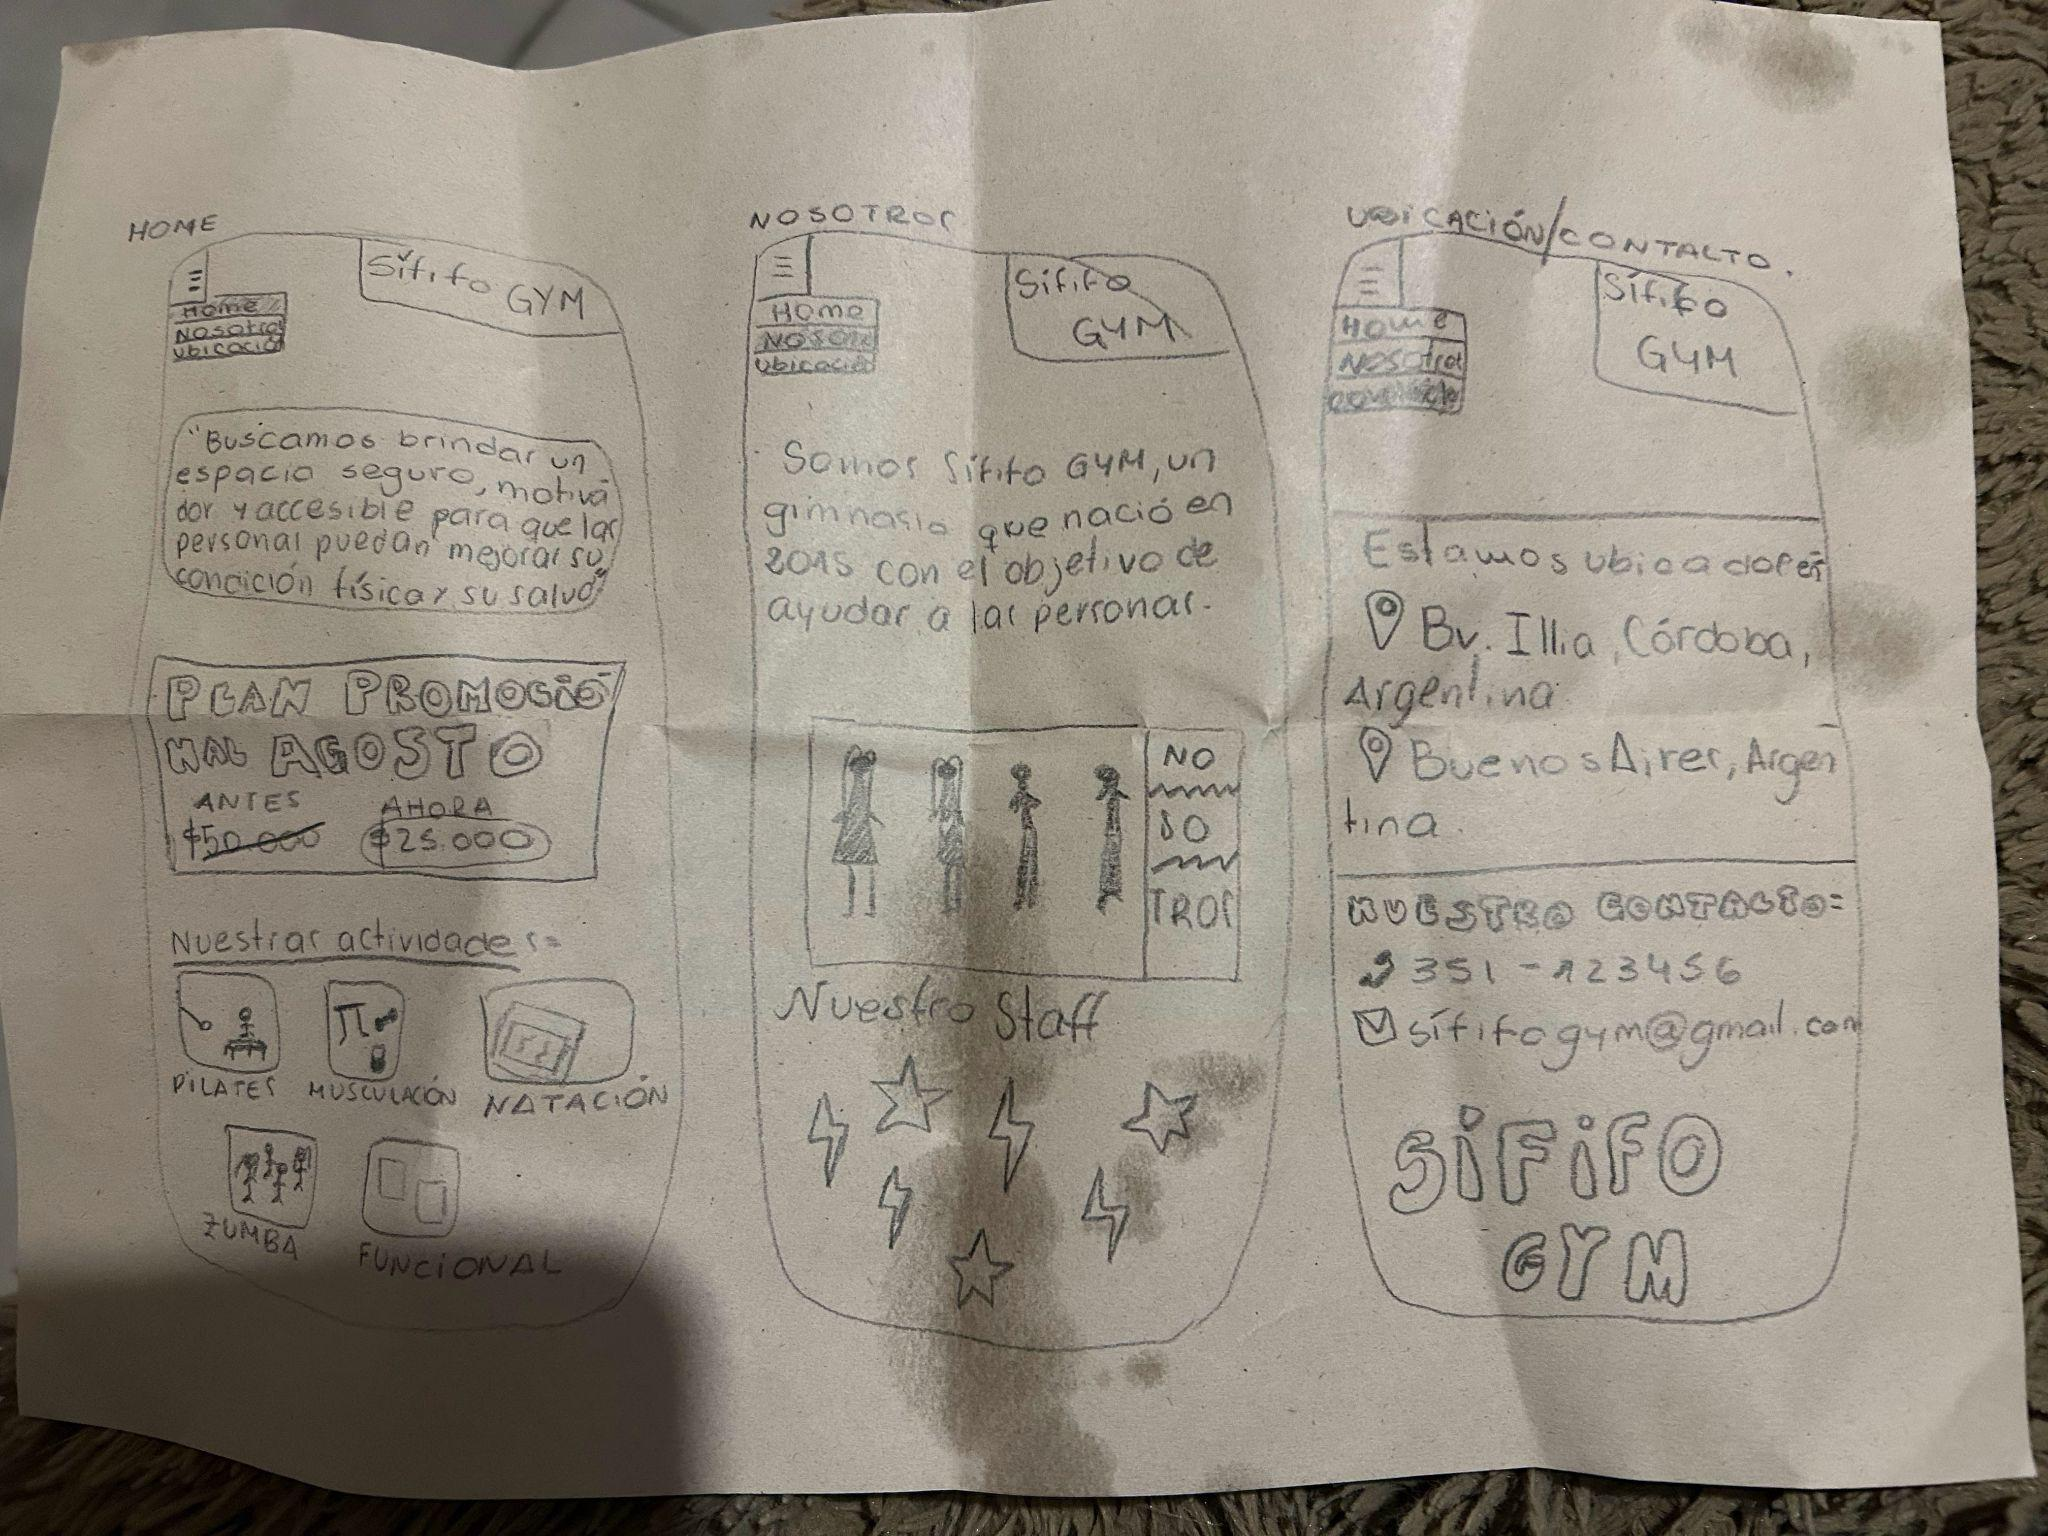 HOME
Sífifo GYM
Home
Nosotros
Ubicació
"Buscamos brindar un
espacio seguro, motiva
dor y accesible para que las
personas puedan mejorar su
condición física y su salud"
PLAN PROMOCIO
NAL AGOSTO
ANTES AHORA
$50.000 $25.000
Nuestras actividades:
PILATES MUSCULACIÓN NATACIÓN
ZUMBA FUNCIONAL
NOSOTROS
Sífifo
GYM
Home
Ubicació
Somos Sífifo GYM, un
gimnasio que nació en
2015 con el objetivo de
ayudar a las personas.
NO
SO
TROS
Nuestro Staff
UBICACIÓN/CONTACTO.
Sífifo
GYM
Home
Nosotros
Estamos ubicados en
Bv. Illia, Córdoba,
Argentina
Buenos Aires, Argen
tina.
NUESTRO CONTACTO:
351-123456
sífifogym@gmail.com
SIFIFO
GYM